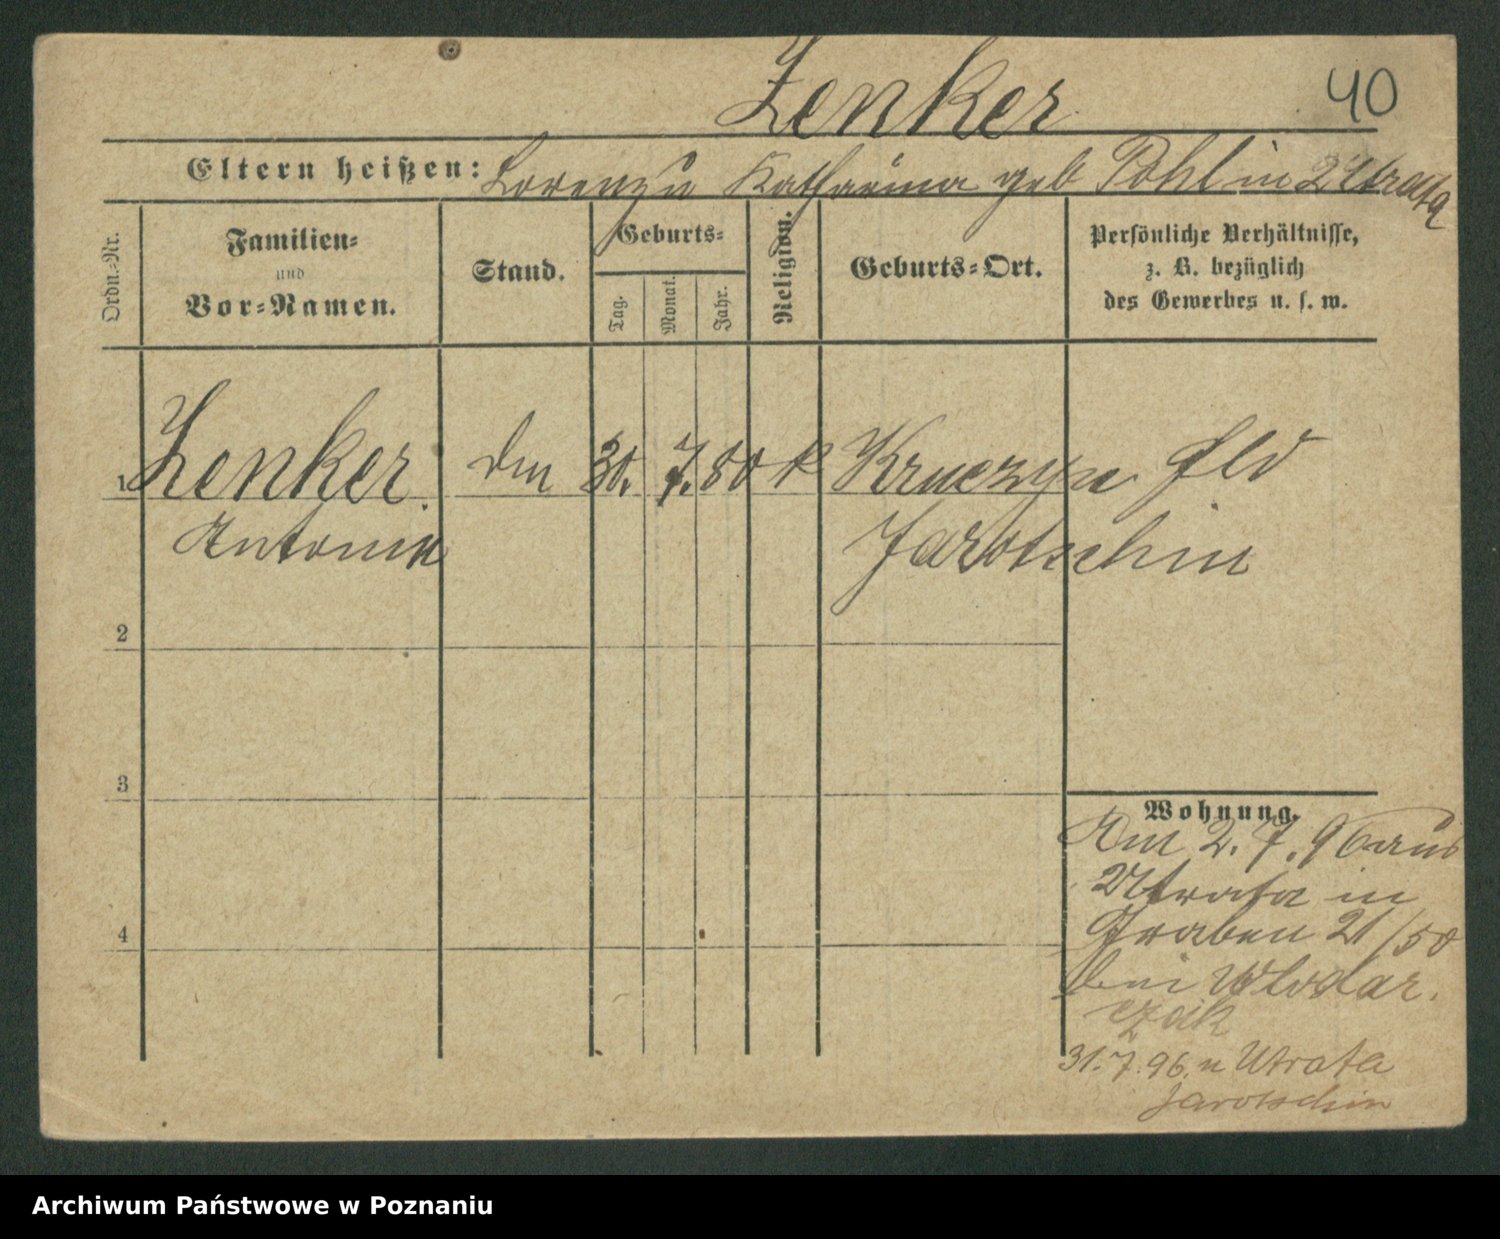 Zenker 40
Eltern heißen: Lorenz u Katharina geb Pohl in Utrata
Ordn.-Nr.
Familien-
und
Vor-Namen.
Stand.
Geburts-
Tag.
Monat.
Jahr.
Religion.
Geburts-Ort.
Persönliche Verhältnisse,
z. B. bezüglich
des Gewerbes u. s. w.
1 Zenker 30. 7. 80 k Kruczyn
Antonie Jarotschin
2
3
4
Wohnung.
Am 2. 7. 96 aus
Utrata in
Graben 21/50
bei Wlodar.
czak
31. 7. 96. n Utrata
Jarotschin
Archiwum Państwowe w Poznaniu